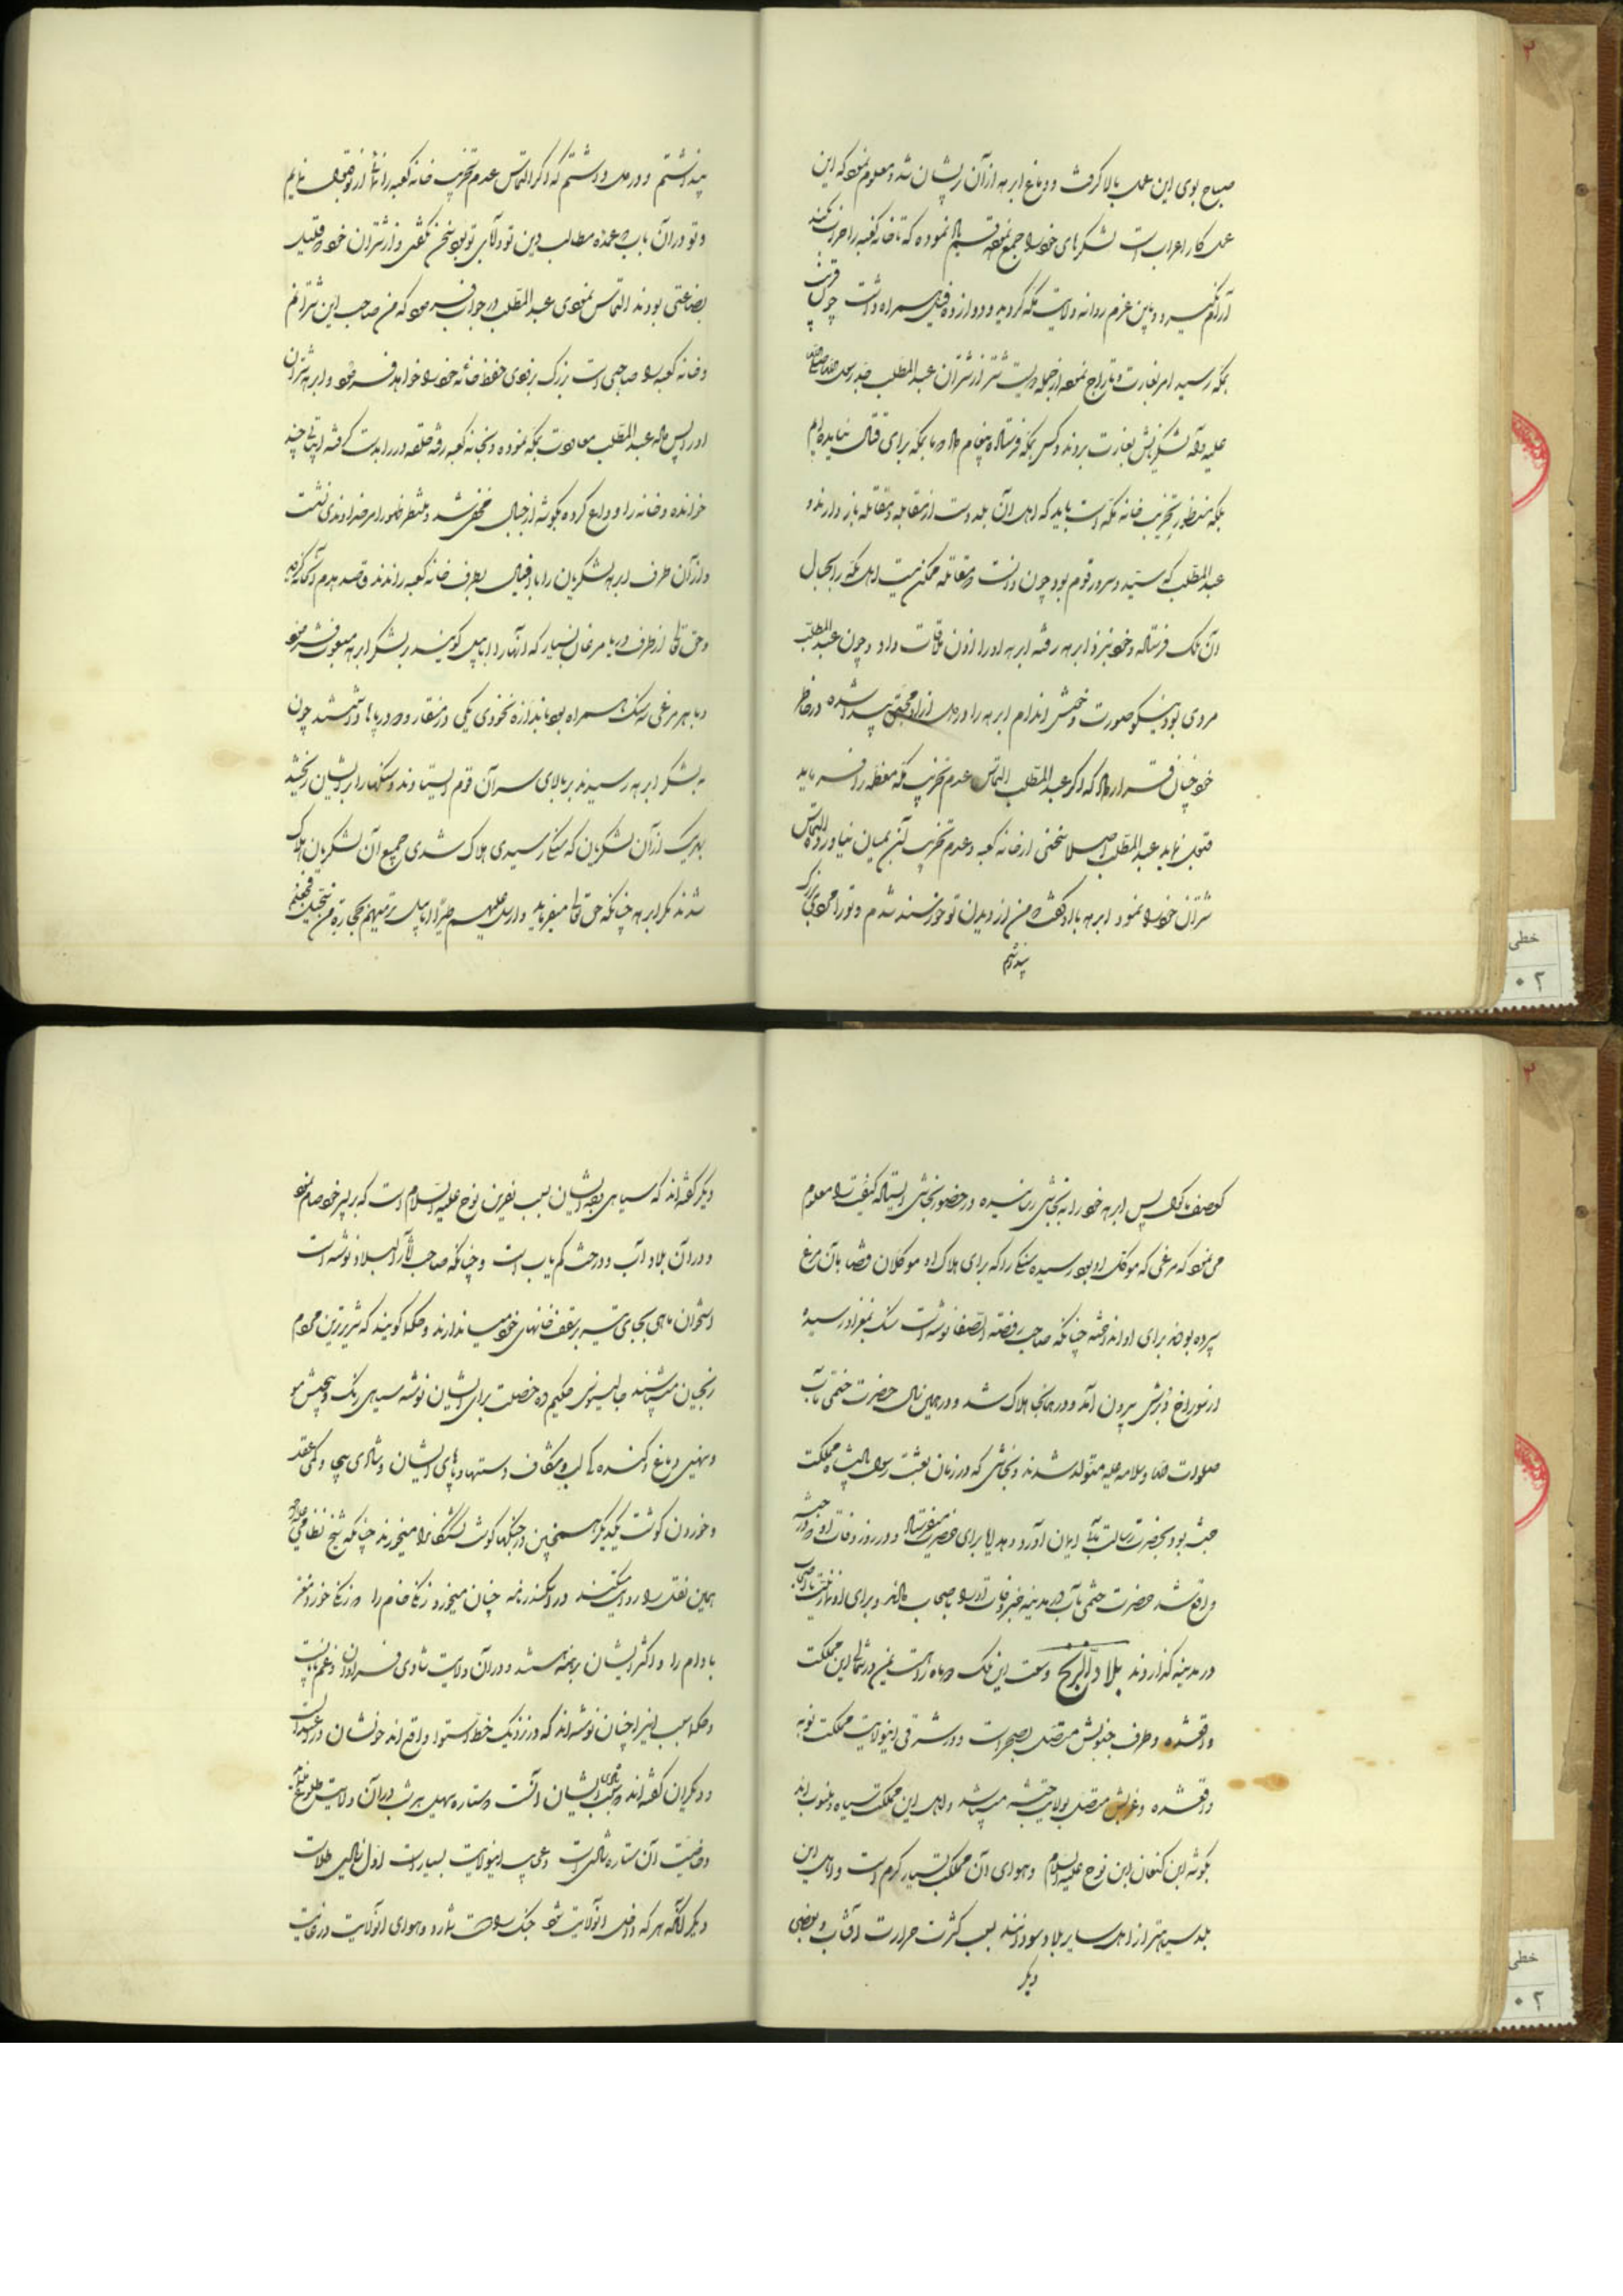 صباح بوی این عمل بالا گرفت و دماغ ابرهه از آن پریشان شد و معلوم نمود که این
عمل کار اعراب است لشکرهای خود را جمع نموده قسم یاد نموده که تا خانه کعبه را خراب نکند
آرام نگیرد و باین عزم روانه ولایت مکه گردید و دوازده فیل همراه داشت چون قریب
بمکه رسید امر بغارت و تاراج نموده از جمله دویست شتر از شتران عبدالمطلب جد رسول خدا صلی الله
علیه و آله لشکریانش بغارت بردند و کس بمکه فرستاده پیغام داد که ما بمکه برای قتال نیامده‌ایم
بلکه منظور تخریب خانه مکه است باید که اهل آن بلد دست از مقابله و مقاتله باز دارند و
عبدالمطلب که سید و سرور قوم بود چون دانست که مقاتله ممکن نیست اهل مکه را بجبال
آن ملک فرستاده و خود بنزد ابرهه رفته ابرهه او را اذن ملاقات داد و چون عبدالمطلب
مردی بود نیکو صورت و خوش اندام ابرهه را در دل از او محبتی پیدا شده در خاطر
خود چنان قرار داد که اگر عبدالمطلب التماس عدم تخریب مکه معظمه را فرماید
قبول نماید عبدالمطلب اصلا سخنی از خانه کعبه و عدم تخریب آن بمیان نیاورده التماس
شتران خود را نمود ابرهه باو گفت من از دیدن تو خورسند شدم و تو را مردی بزرگ
پنداشتم
پنداشتم و در دل داشتم که اگر التماس عدم تخریب خانه کعبه را نمائی از تو قبول نمایم
و تو در آن باب که عمده مطالب دین تو و آبای تو بود سخن نگفتی و از شتران خود که قلیل
بضاعتی بودند التماس نمودی عبدالمطلب در جواب فرمود که من صاحب این شترانم
و خانه کعبه را صاحبی است بزرگ بزودی حفظ خانه خود را خواهد فرمود و ابرهه شتران
او را پس داده عبدالمطلب معاودت بمکه نموده و بخانه کعبه رفته حلقه در را بدست گرفته ابیاتی چند
خوانده و خانه را وداع کرده بگوشه از جبال مخفی شد و منتظر ظهور امر خداوندی نشست
و از آن طرف ابرهه لشکریان را با افیال بطرف خانه کعبه راندند و قصد هدم آنخانه کردند
و حق تعالی از طرف دریا مرغان بسیار که آنها را ابابیل گویند بر لشکر ابرهه مبعوث فرمود
و با هر مرغی سه سنگ همراه بود باندازه نخودی یکی در منقار و دو در پاها داشتند چون
به لشکر ابرهه رسیدند بر بالای سر آن قوم ایستادند و سنگها را بر ایشان ریختند
بهر یک از آن لشکریان که سنگ رسیدی هلاک شدی جمیع آن لشکریان هلاک
شدند مگر ابرهه چنانکه حق تعالی میفرماید و ارسل علیهم طیرا ابابیل ترمیهم بحجارة من سجیل فجعلهم
کعصف ماکول پس ابرهه خود را به نجاشی رسانیده در حضور نجاشی ایستاده کیفیت را معلوم
می نمود که مرغی که موکل او بود رسیده سنگ را که برای هلاک او موکلان قضا بآن مرغ
سپرده بودند برای او انداخته چنانکه صاحب روضة الصفا نوشته است سنگ بمغز او رسیده
از سوراخ دبرش بیرون آمد و در همانجا هلاک شد و در همین سال حضرت ختمی مآب
صلوات الله و سلامه علیه متولد شدند و نجاشی که در زمان بعثت رسول پادشاه مملکت
حبشه بود بحضرت رسالت مآب ایمان آورد و هدایا برای حضرت میفرستاد و در روز وفات او که در حبشه
واقع شد حضرت ختمی مآب در مدینه خبر وفات او را باصحاب دادند و برای او نماز
در مدینه گذاردند بلاد الزنج وسعت این ملک دو ماه راهست یمن در شمال این مملکت
واقعشده و طرف جنوبش متصل بصحراست و در شرقی اینولایت مملکت نوبه
واقعشده و غربش متصل بولایت حبشه میباشد و اهل این مملکت سیاه و منسوب اند
بکوش ابن کنعان ابن نوح علیه السلام و هوای آن مملکت بسیار گرم است و اهل این
بلد سیاهتر از اهل سایر بلاد سودانند بسبب کثرت حرارت آفتاب و بعضی
دیگر
دیگر گفته‌اند که سیاهی بودن ایشان بسبب نفرین نوح علیه السلام است که بر پسر خود حام نمود
و در آن بلاد آب و درخت کم یاب است و چنانکه صاحب آثار البلاد نوشته است
استخوان ماهی بجای تیر بر سقف خانهای خود میاندازند و حکما گویند که شریرترین مردم
زنجیان میباشند جالینوس حکیم ده خصلت برای ایشان نوشته سیاهی رنگ و پیچش مو
و پهنی دماغ و گنده گی لب و شکاف دستها و پاهای ایشان و شادی بیجا و کمی عقل
و خوردن گوشت یکدیگر همچنین در جنگها گوشت کشتگان را میخورند چنانکه شیخ نظامی
همین نقل را روایت میکند در اسکندرنامه چنان میخورد زنگی خام را که زنگی خورد مغز
بادام را و اکثر ایشان برهنه باشند و در آن ولایت شادی فراوان و غم نایاب
و حکما سبب اینرا چنان نوشته‌اند که در نزدیک خط استوا واقع اند خونشان در
و دیگران گفته‌اند که سبب شادی ایشان آنست که ستاره سهیل هر شب در آن ولایت طلوع
و خاصیت آن ستاره شادیست و عجایب اینولایت بسیار است اول زیادتی طلاست
دیگر آنکه هر که داخل آنولایت شود جنگ را دوست ندارد و هوای آنولایت در غایت
خطی
۰۲
خطی
۰۲